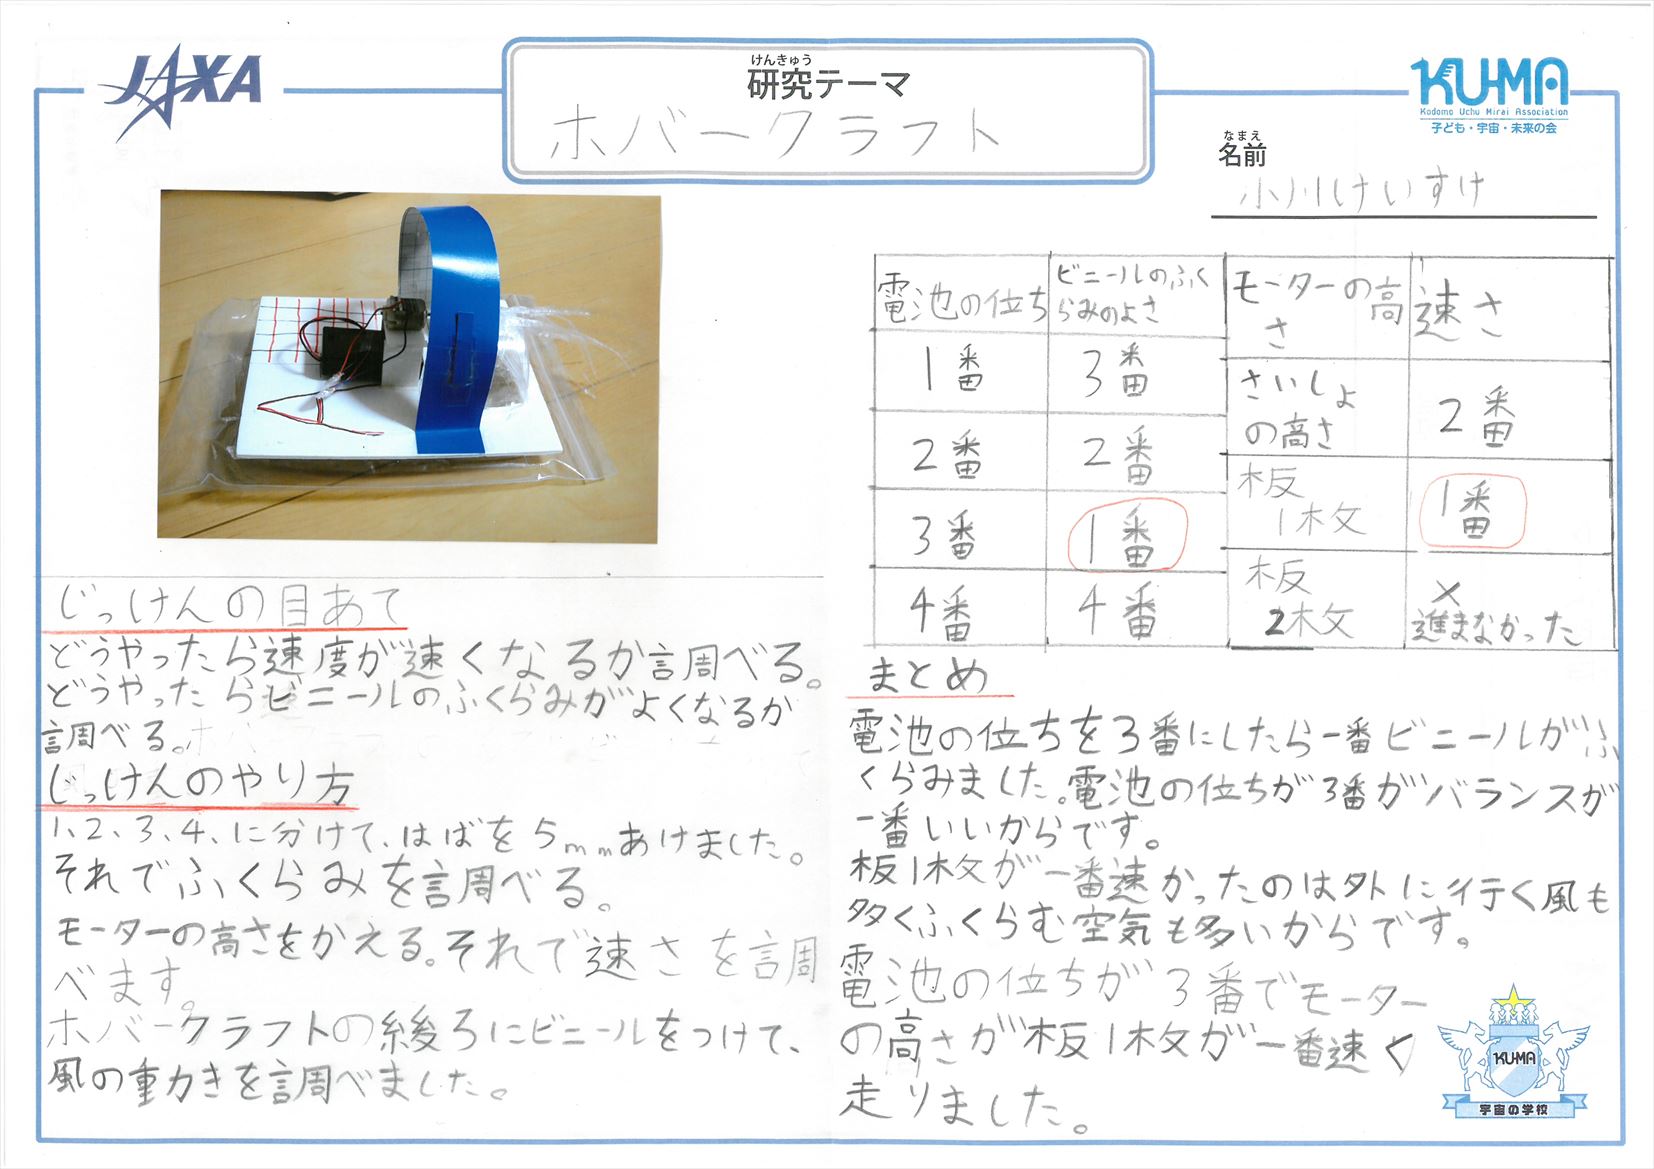 JAXA
けんきゅう
研究テーマ
ホバークラフト
KU-MA
Kodomo Uchu Mirai Association
子ども・宇宙・未来の会
なまえ
名前
小川けいすけ
じっけんの目あて
どうやったら速度が速くなるか調べる。
どうやったらビニールのふくらみがよくなるか
調べる。
じっけんのやり方
1、2、3、4、に分けて、はばを5mmあけました。
それでふくらみを調べる。
モーターの高さをかえる。それで速さを調
べます。
ホバークラフトの後ろにビニールをつけて、
風の動きを調べました。
電池の位ち ビニールのふくらみのよさ モーターの高さ 速さ
1番 3番 さいしょの高さ 2番
2番 2番 板1枚 1番
3番 1番 板2枚 × 進まなかった
4番 4番
まとめ
電池の位ちを3番にしたら一番ビニールがふ
くらみました。電池の位ちが3番がバランスが
一番いいからです。
板1枚が一番速かったのは外に行く風も
多くふくらむ空気も多いからです。
電池の位ちが3番でモーター
の高さが板1枚が一番速く
走りました。
KUMA
宇宙の学校